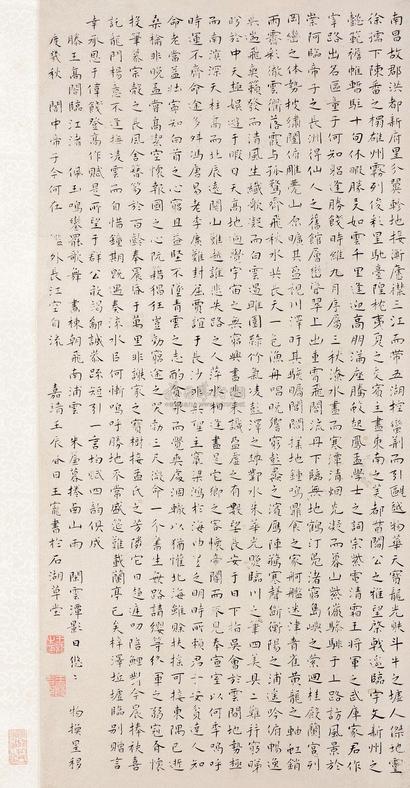 南昌故郡洪都新府星分翼軫地接衡廬襟三江而帶五湖控蠻荊而引甌越物華天寶龍光射斗牛之墟人傑地靈
徐孺下陳蕃之榻雄州霧列俊彩星馳臺隍枕夷夏之交賓主盡東南之美都督閻公之雅望棨戟遙臨宇文新州之
懿範襜帷暫駐十旬休暇勝友如雲千里逢迎高朋滿座騰蛟起鳳孟學士之詞宗紫電清霜王將軍之武庫家君作
宰路出名區童子何知躬逢勝餞時維九月序屬三秋潦水盡而寒潭清烟光凝而暮山紫儼驂騑于上路訪風景於
崇阿臨帝子之長洲得仙人之舊館層巒聳翠上出重霄飛閣流丹下臨無地鶴汀鳧渚窮島嶼之縈迴桂殿蘭宮列
岡巒之體勢披繡闥俯雕甍山原曠其盈視川澤盱其駭矚閭閻撲地鍾鳴鼎食之家舸艦迷津青雀黃龍之舳虹銷
雨霽彩徹雲衢落霞與孤鶩齊飛秋水共長天一色漁舟唱晚響窮彭蠡之濱鴈陣驚寒聲斷衡陽之浦遙吟俯暢逸
興遄飛爽籟發而清風生纖歌凝而白雲遏睢園綠竹氣凌彭澤之樽鄴水朱華光照臨川之筆四美具二難并窮睇
眄於中天極娛遊于暇日天高地迥覺宇宙之無窮興盡悲來識盈虛之有數望長安于日下指吳會於雲間地勢極
而南溟深天柱高而北辰遠關山難越誰悲失路之人萍水相逢盡是它鄉之客懷帝閽而不見奉宣室以何年嗚呼
時運不齊命途多舛馮唐易老李廣難封屈賈誼于長沙非無聖主竄梁鴻於海曲豈乏明時所賴君子安貧達人知
命老當益壯寧知白首之心窮且益堅不墜青雲之志酌貪泉而覺爽處涸轍以猶懽北海雖賒扶搖可接東隅已逝
桑榆非晚孟嘗高潔空懷報國之心阮藉猖狂豈効窮途之哭勃三尺微命一介書生無路請纓等終軍之弱冠有懷
投筆慕宗愨之長風舍簪笏於百齡奉晨昏于萬里非謝家之寶樹接孟氏之芳鄰它日趨庭叨陪鯉對今晨捧袂喜
託龍門楊意不逢撫凌雲而自惜鍾期既遇奏流水以何慚嗚呼勝地不常盛筵難再蘭亭已矣梓澤丘墟臨別贈言
幸承恩于偉餞登高作賦是所望于群公敢竭鄙誠恭疏短引一言均賦四韻俱成
滕王高閣臨江渚 佩玉鳴鑾罷歌舞 畫棟朝飛南浦雲 朱簾暮捲西山雨 閒雲潭影日悠〻 物換星移
度幾秋 閣中帝子今何在 檻外長江空自流 嘉靖壬辰八日王寵書於石湖草堂